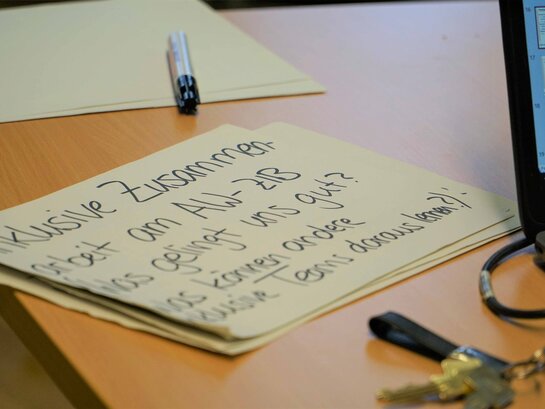 inklusive Zusammen-
arbeit am AW-ZIB
Was gelingt uns gut?
was können andere
klusive Teams daraus lernen?